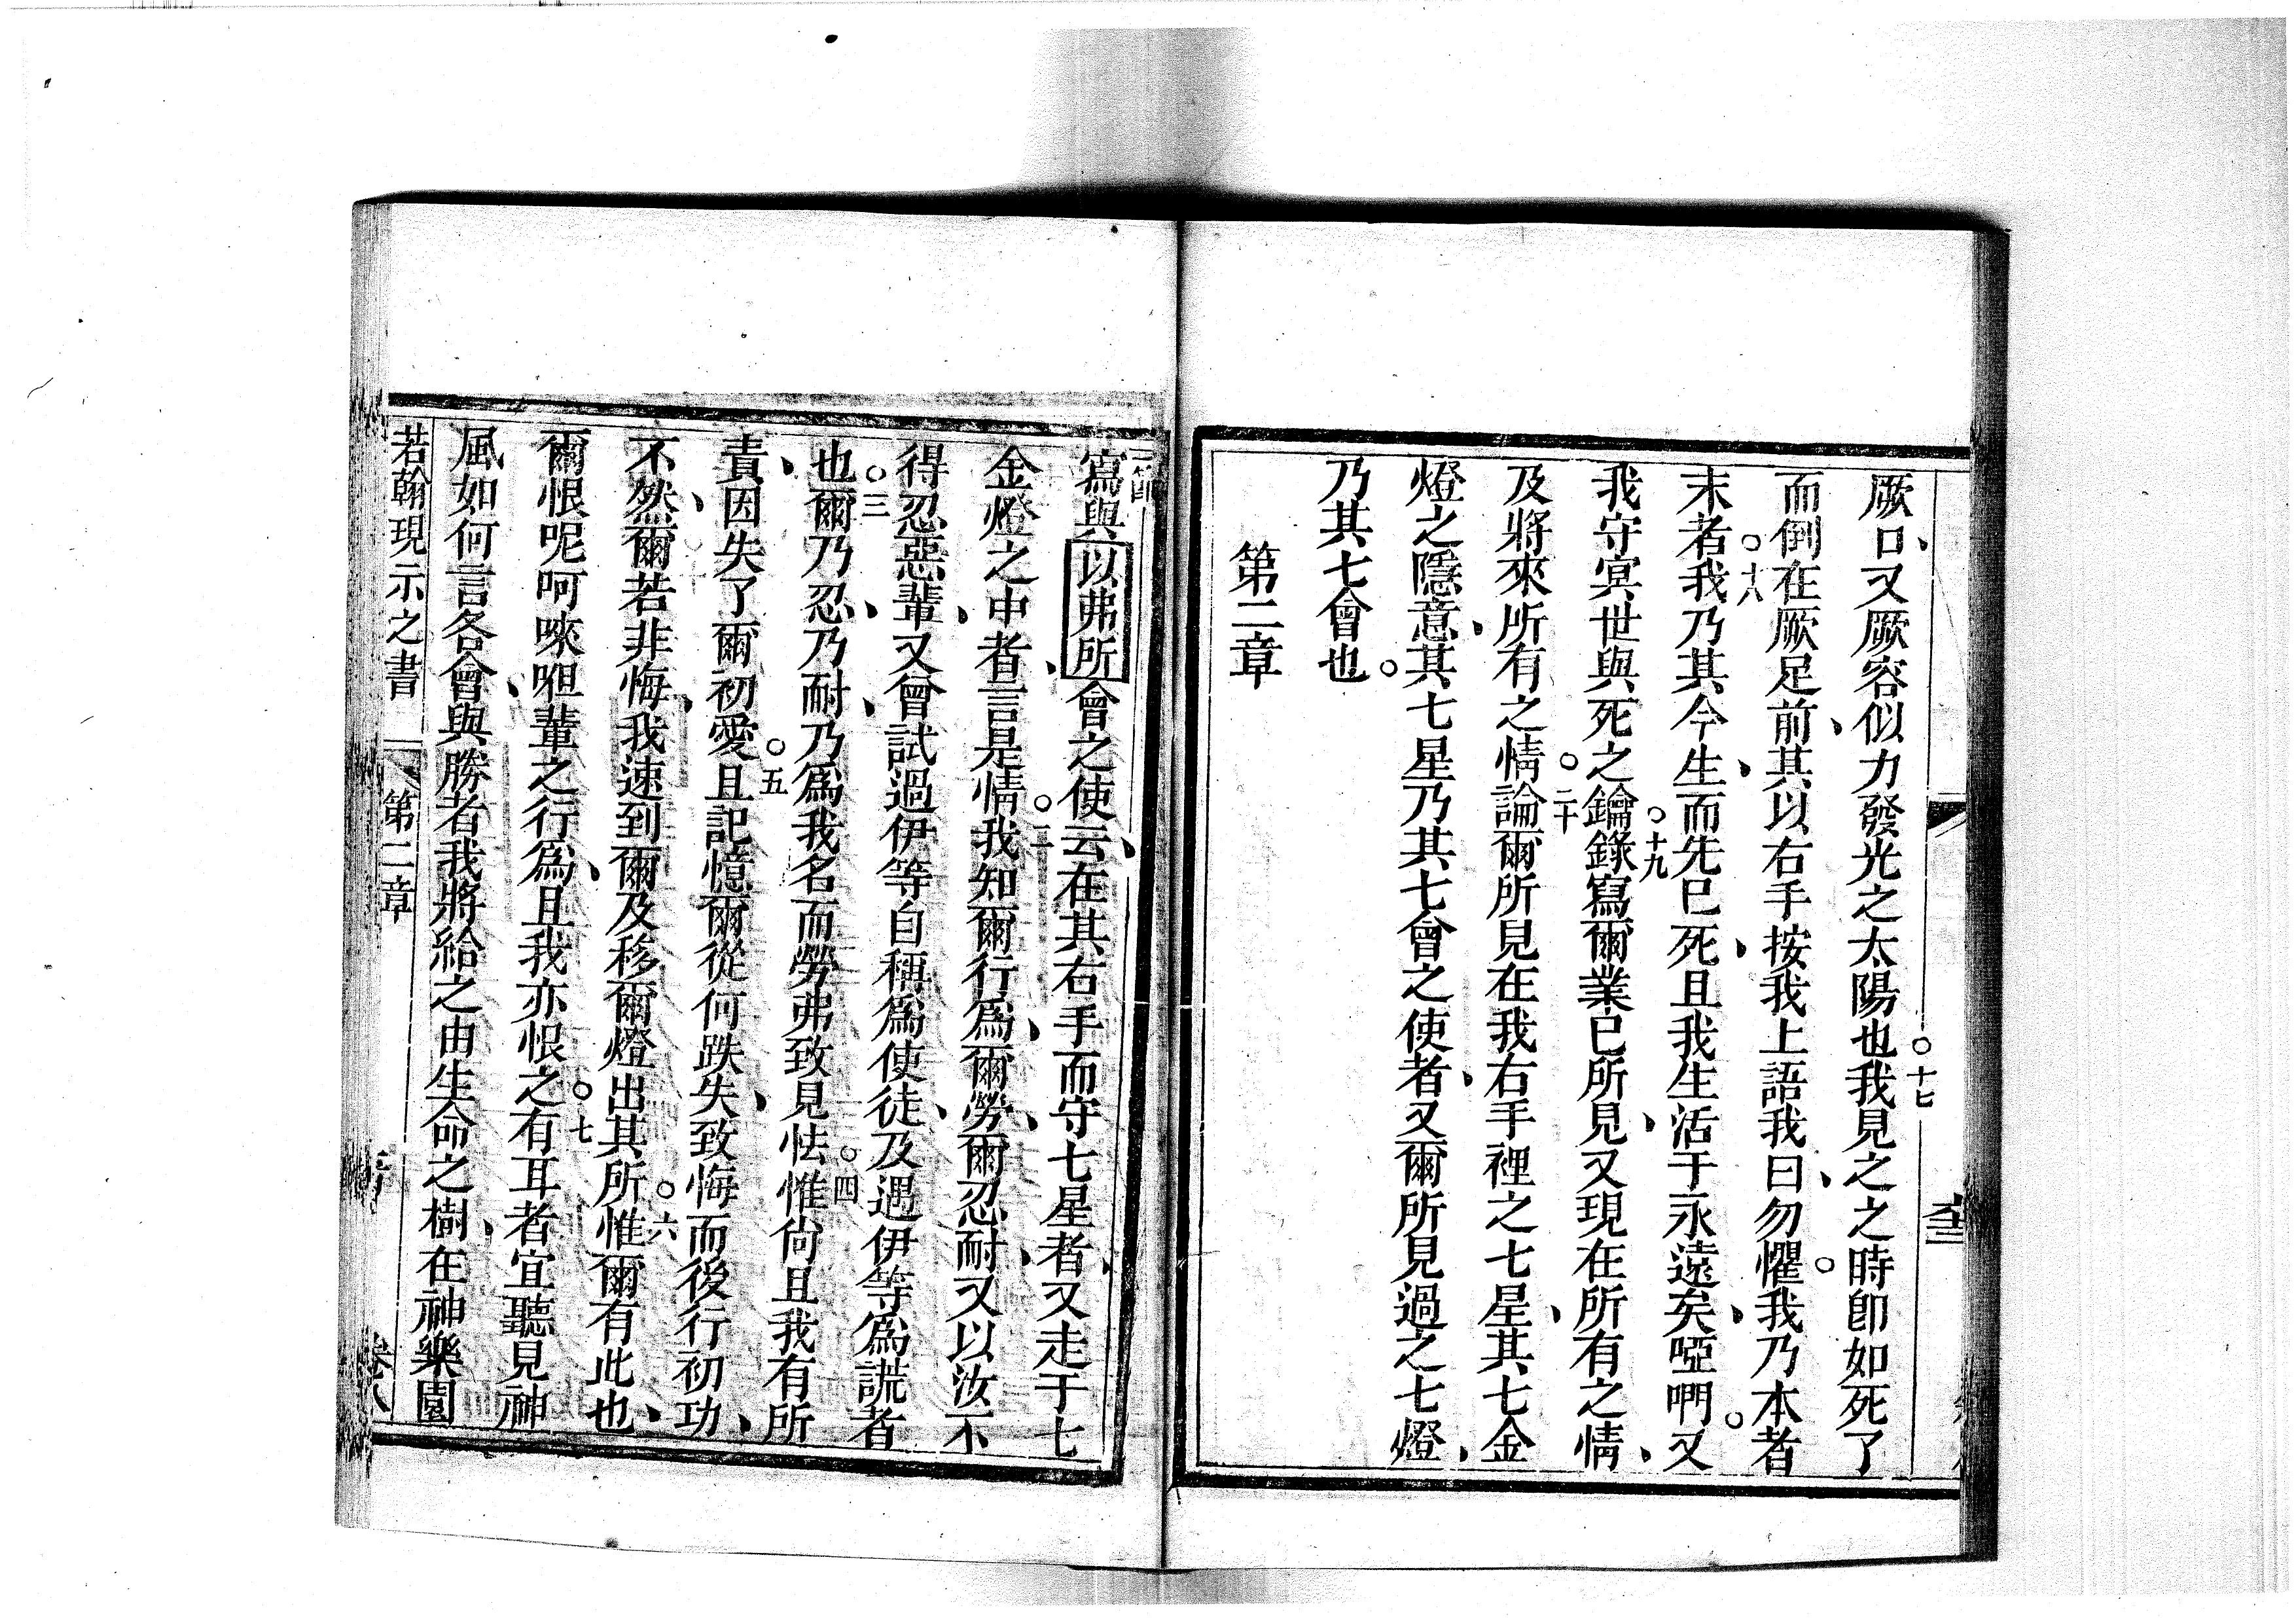 厥口、又厥容似力發光之太陽也○十七我見之之時卽如死了
而倒在厥足前、其以右手按我上語我曰、勿懼。我乃本者
末者○十八我乃其今生、而先已死、且我生活于永遠矣、啞唎。又
我守㝠世與死之鑰○十九錄寫爾業已所見、又現在所有之情、
及將來所有之情○二十論爾所見在我右手裡之七星、其七金
燈之隱意、其七星乃其七會之使者、又爾所見過之七燈、
乃其七會也。
第二章
一節
寫與以弗所會之使云、在其右手而守七星者、又走于七
金燈之中者、言是情○二我知爾行爲、爾勞、爾忍耐、又以汝不
得忍惡輩、又曾試過伊等自稱爲使徒、及遇伊等爲謊者
也○三爾乃忍、乃耐、乃爲我名而勞弗致見怯○四惟尙且我有所
責、因失了爾初愛○五且記憶爾從何跌失、致悔而後行初功、
不然、爾若非悔、我速到爾及移爾燈出其所○六惟爾有此也、
爾恨呢呵唻咀輩之行爲、且我亦恨之○七有耳者宜聽見神
風如何言各會、與勝者我將給之由生命之樹、在神樂園
若翰現示之書 第二章 卷八